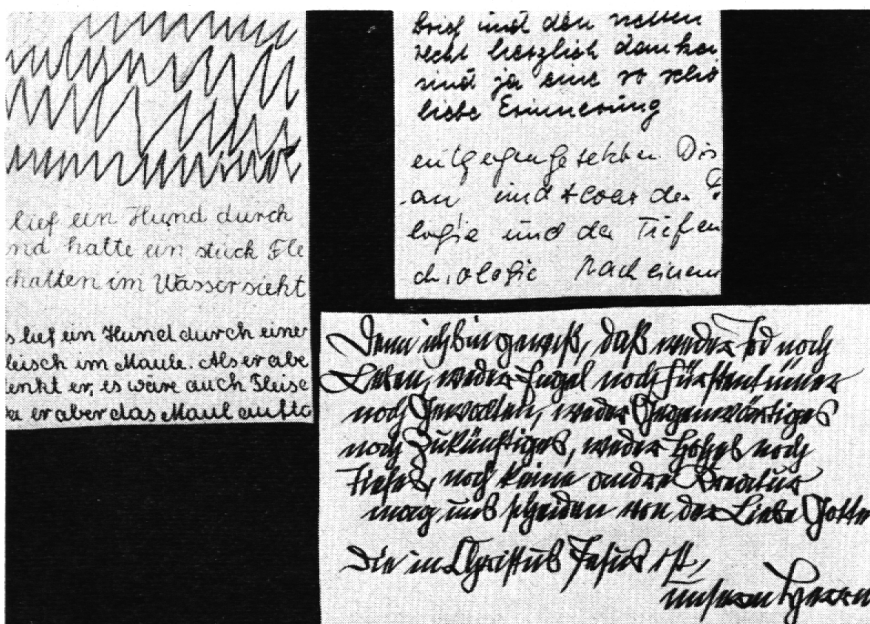 lief ein Hund durch
nd hatte ein stück Fle
chatten im Wasser sieht
s lief ein Hund durch einer
leisch im Maule. Als er abe
enkt er, es wäre auch Fleisc
a er aber das Maul auftα
brief und den netten
recht herzlich danken
sind ja eine so schö
liebe Erinnerung
entgegengesetzten Dis
an und zwar der
logie und der Tiefen
chologie Nach einem
Denn ich bin gewiß, daß weder Tod noch
Leben, weder Engel noch Fürstentümer
noch Gewalten, weder Gegenwärtiges
noch Zukünftiges, weder Hohes noch
Tiefes, noch keine andre Kreatur
mag uns scheiden von der Liebe Gotte
die in Christus Jesus ist,
unserm Herrn